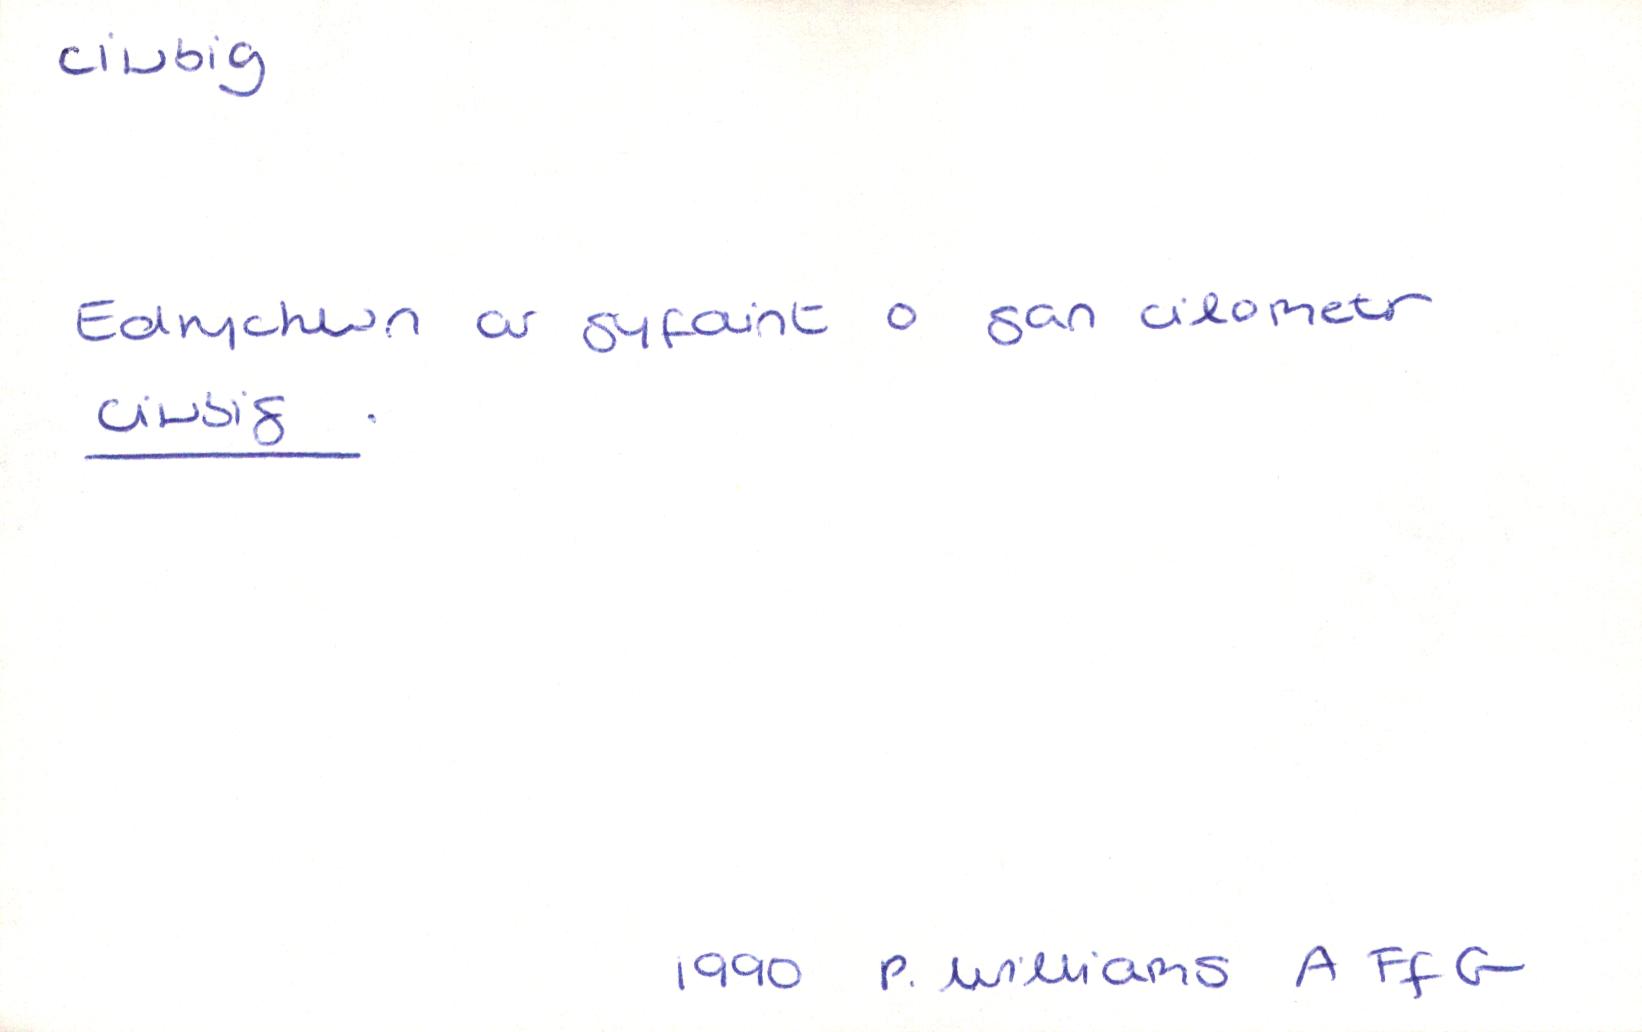 ciwbig
Edrychwn ar gyfaint o gan cilometr
ciwbig .
1990 P. Williams A Ff G